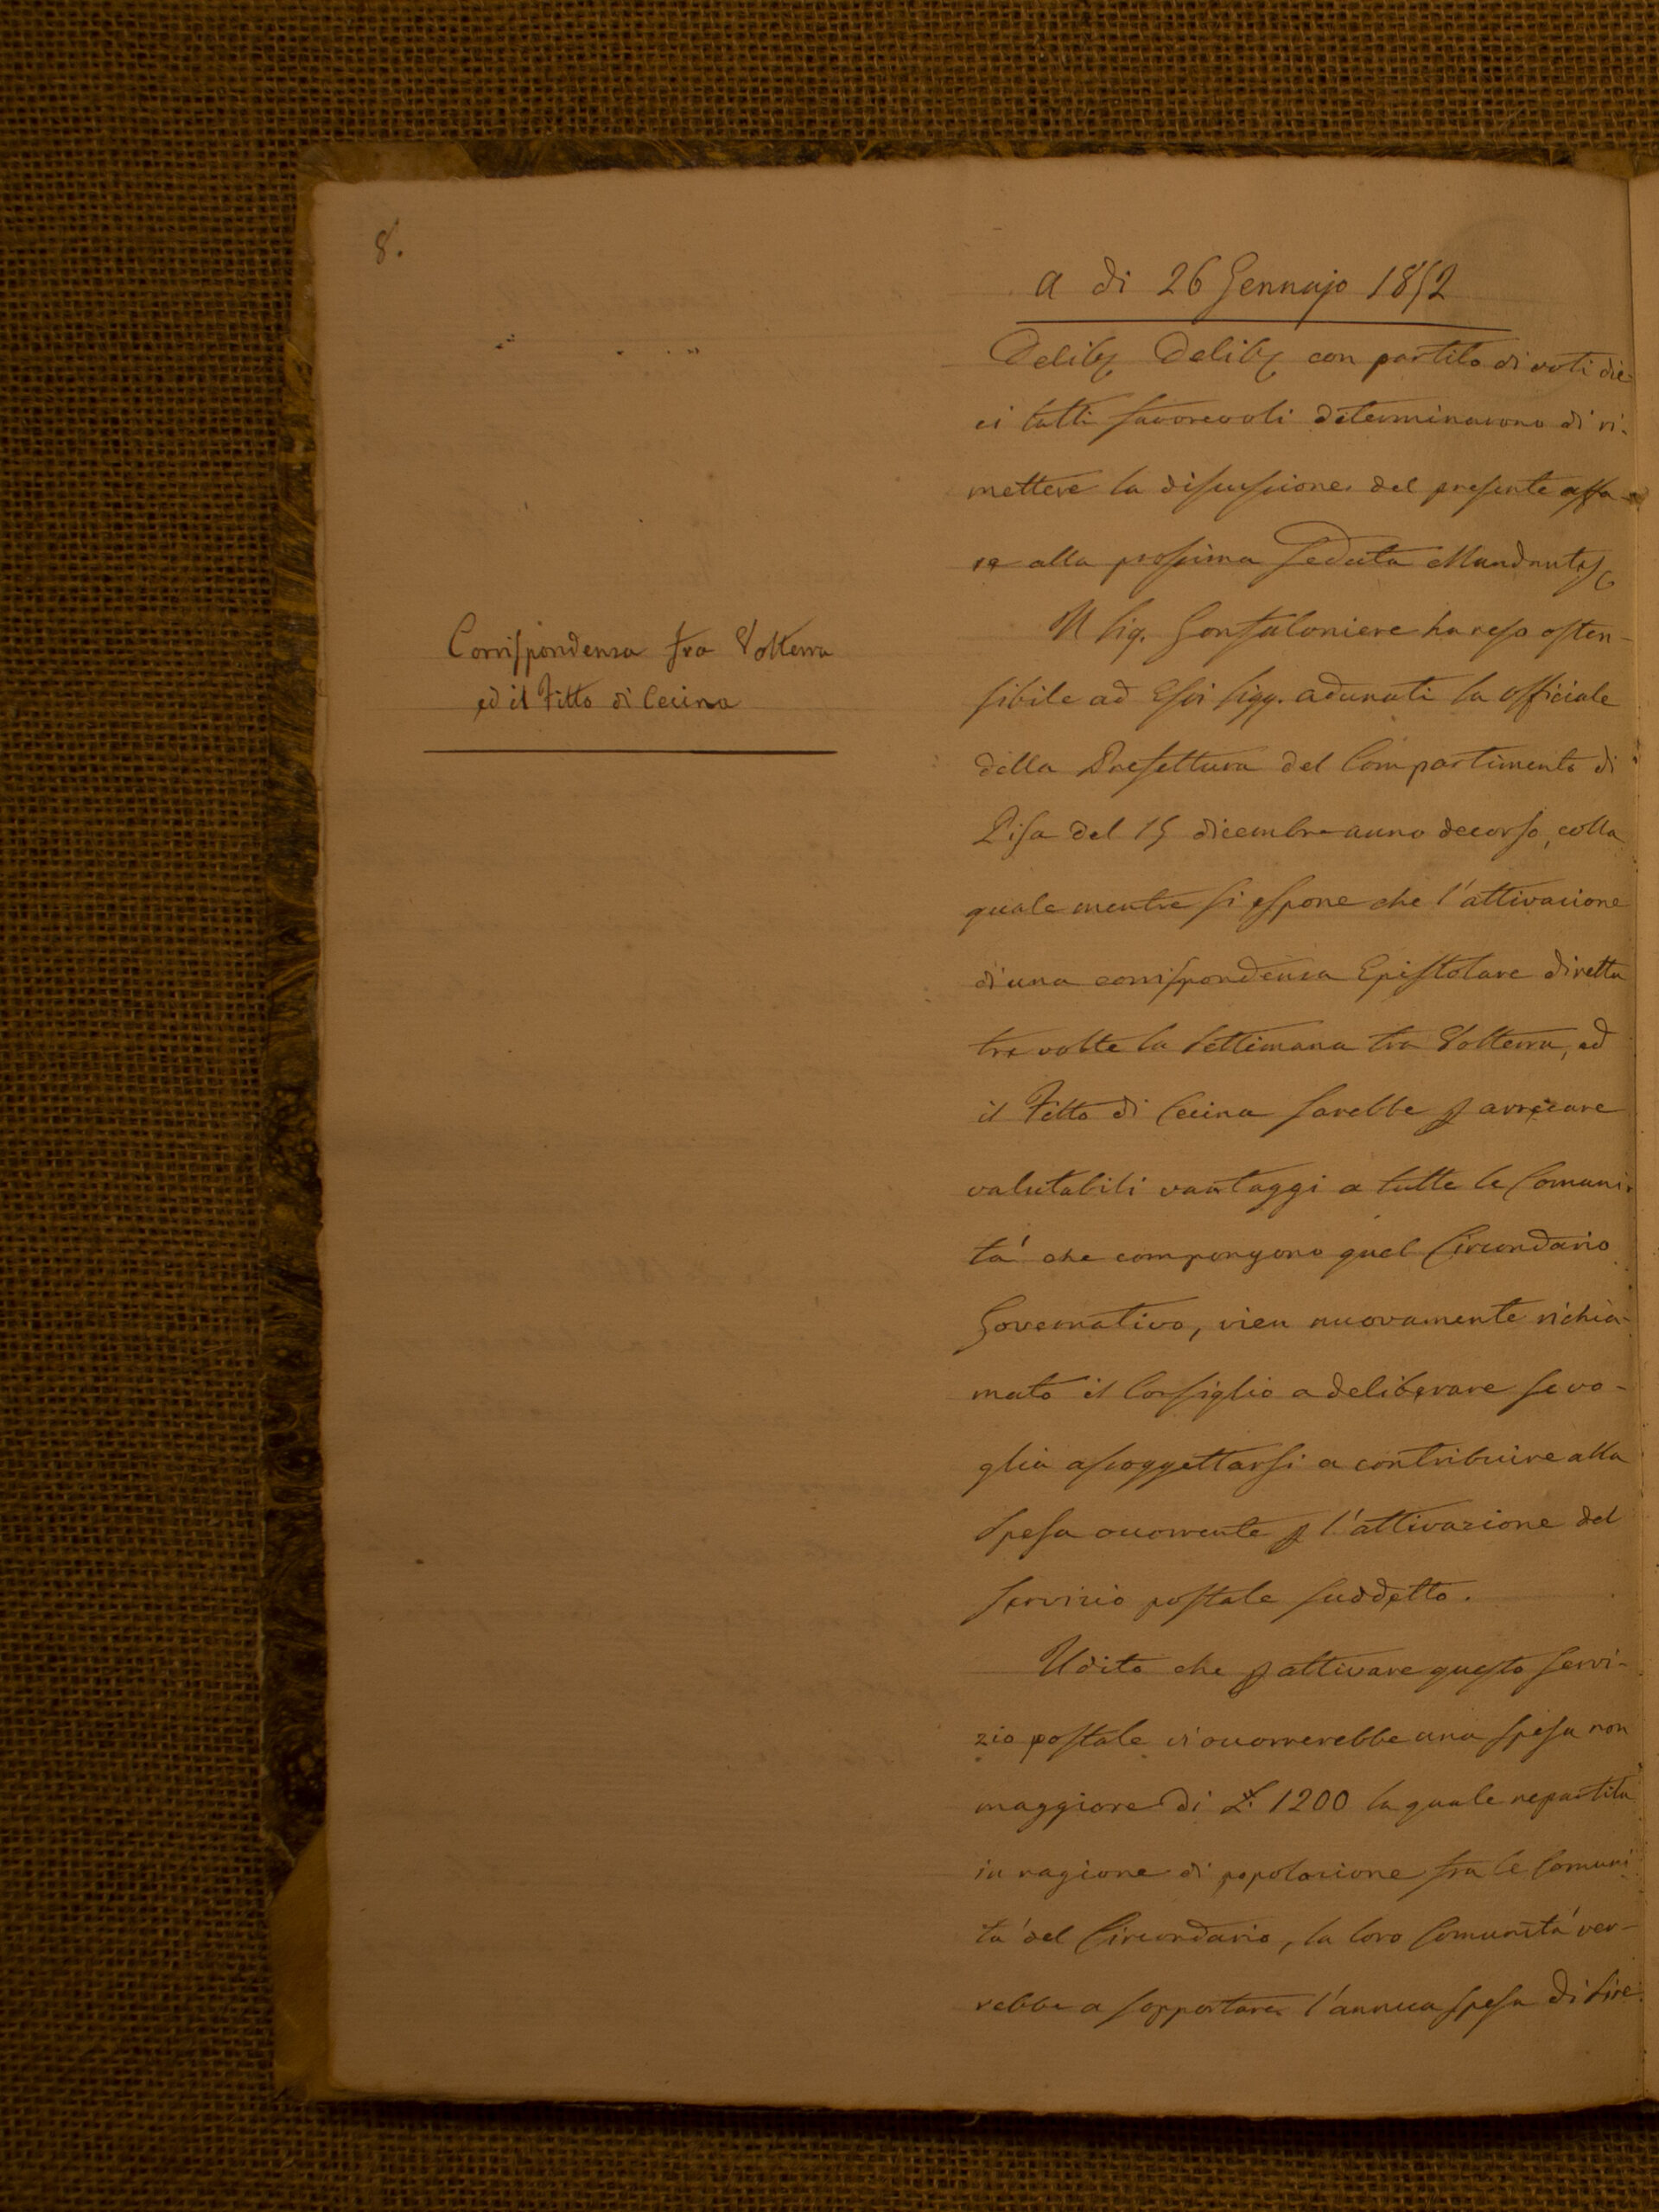 8.
a di 26 Gennajo 1852
Delib Delib con partito di voti die-
ci tutti favorevoli determinarono di ri-
mettere la discussione del presente affa-
re alla prossima Seduta Mandantes
Corrispondenza fra Volterra
ed il Fitto di Cecina
Il Sig. Gonfaloniere ha reso osten-
sibile ad Essi Sigg. adunati la officiale
della Prefettura del Compartimento di
Pisa del 15 dicembre anno decorso, colla
quale mentre si espone che l'attivazione
di una corrispondenza Epistolare diretta
tre volte la settimana tra Volterra, ed
il Fitto di Cecina sarebbe p arrecare
valutabili vantaggi a tutte le Comuni-
tá che compongono quel Circondario
Governativo, vien nuovamente richia-
mato il Consiglio a deliberare se vo-
glia assoggettarsi a contribuire alla
spesa occorrente p l'attivazione del
servizio postale suddetto.
Udito che p attivare questo servi-
zio postale vi occorrerebbe una spesa non
maggiore di £. 1200 la quale repartita
in ragione di popolazione fra le Comuni-
tá del Circondario, la loro Comunitá ver-
rebbe a sopportare l'annua spesa di Lire